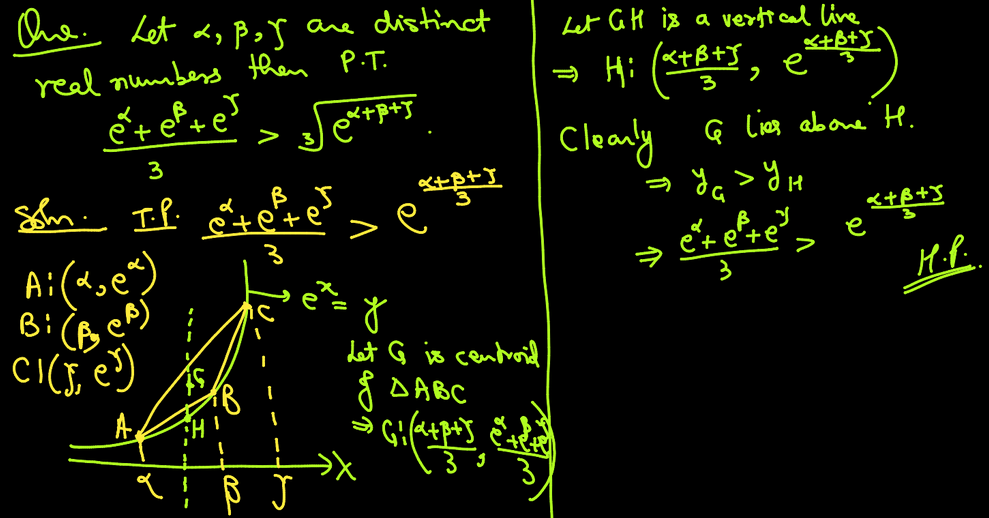 Que. Let α, β, γ are distinct
real numbers then P.T.
(e^α + e^β + e^γ)/3 > ∛(e^(α+β+γ)).
Soln. T.P. (e^α + e^β + e^γ)/3 > e^((α+β+γ)/3)
A:(α, e^α)
B:(β, e^β)
C:(γ, e^γ)
e^x = y
C
G
B
A
H
X
α β γ
Let G is centroid
of △ABC
⇒ G:((α+β+γ)/3, (e^α+e^β+e^γ)/3)
Let GH is a vertical line
⇒ H:((α+β+γ)/3, e^((α+β+γ)/3))
Clearly G lies above H.
⇒ y_G > y_H
⇒ (e^α + e^β + e^γ)/3 > e^((α+β+γ)/3)
H.P.